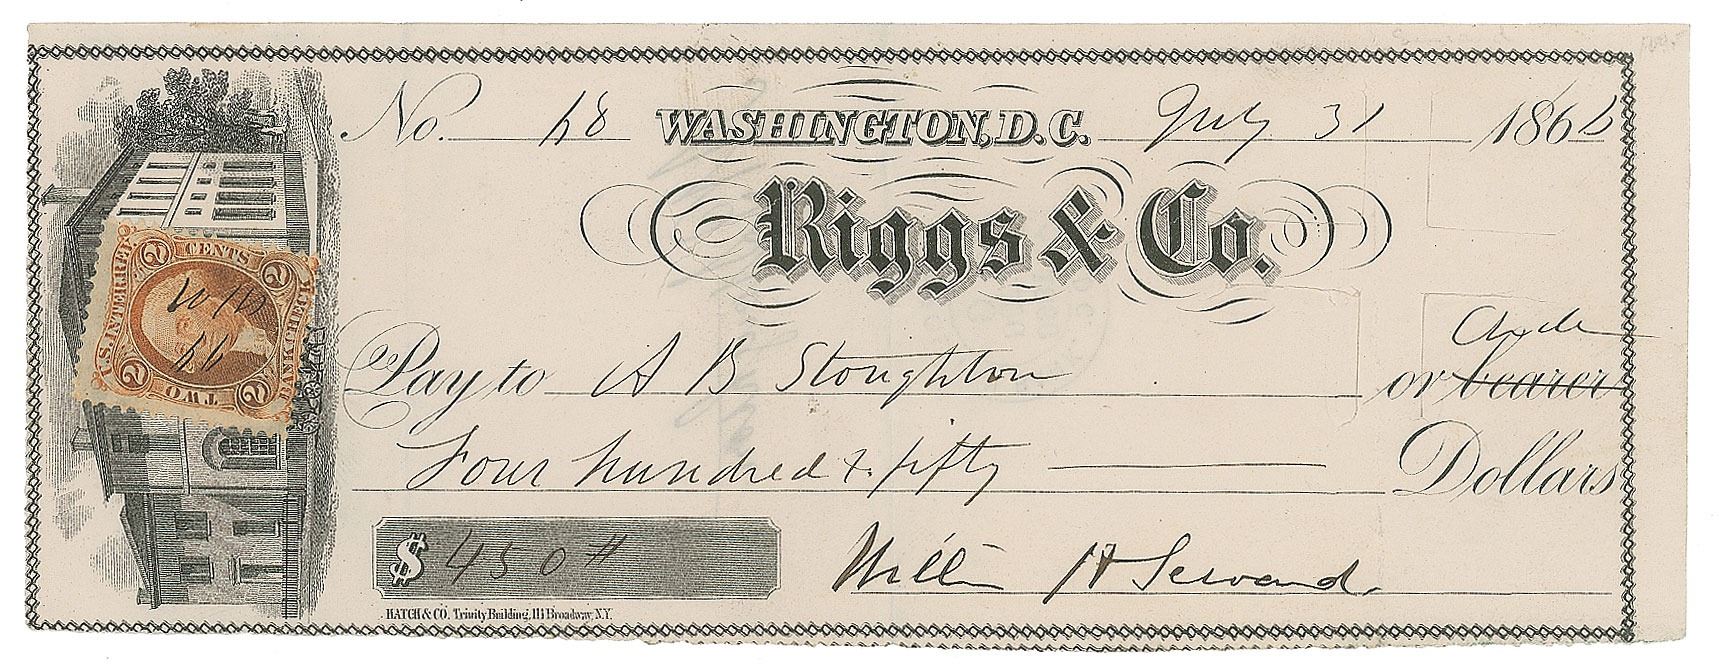 No. 48 WASHINGTON, D.C. July 31 186
Riggs & Co.
Pay to A B Stoughton or bearer
Four hundred & fifty Dollars
$ 450
William H Seward.
HATCH & CO. Trinity Building, 111 Broadway, N.Y.
U.S. INTER. REV.
2 CENTS 2
BANK CHECK
2 TWO 2
WHS